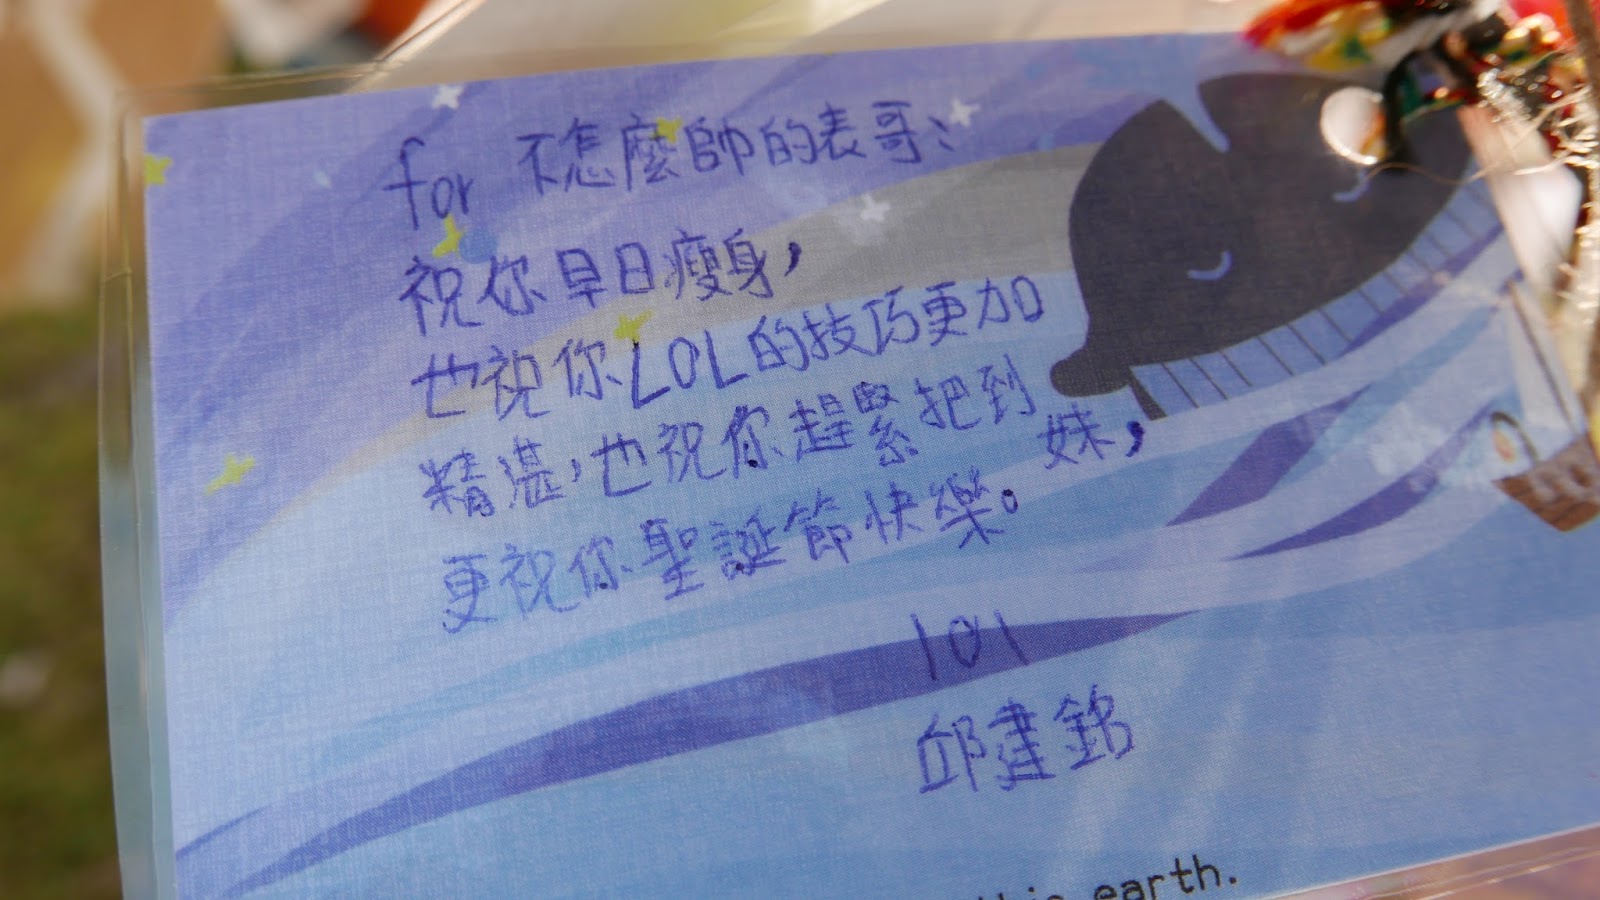 for 不怎麼帥的表哥:
祝你早日瘦身,
也祝你LOL的技巧更加
精湛,也祝你趕緊把到妹,
更祝你聖誕節快樂。
101
邱建銘
this earth.